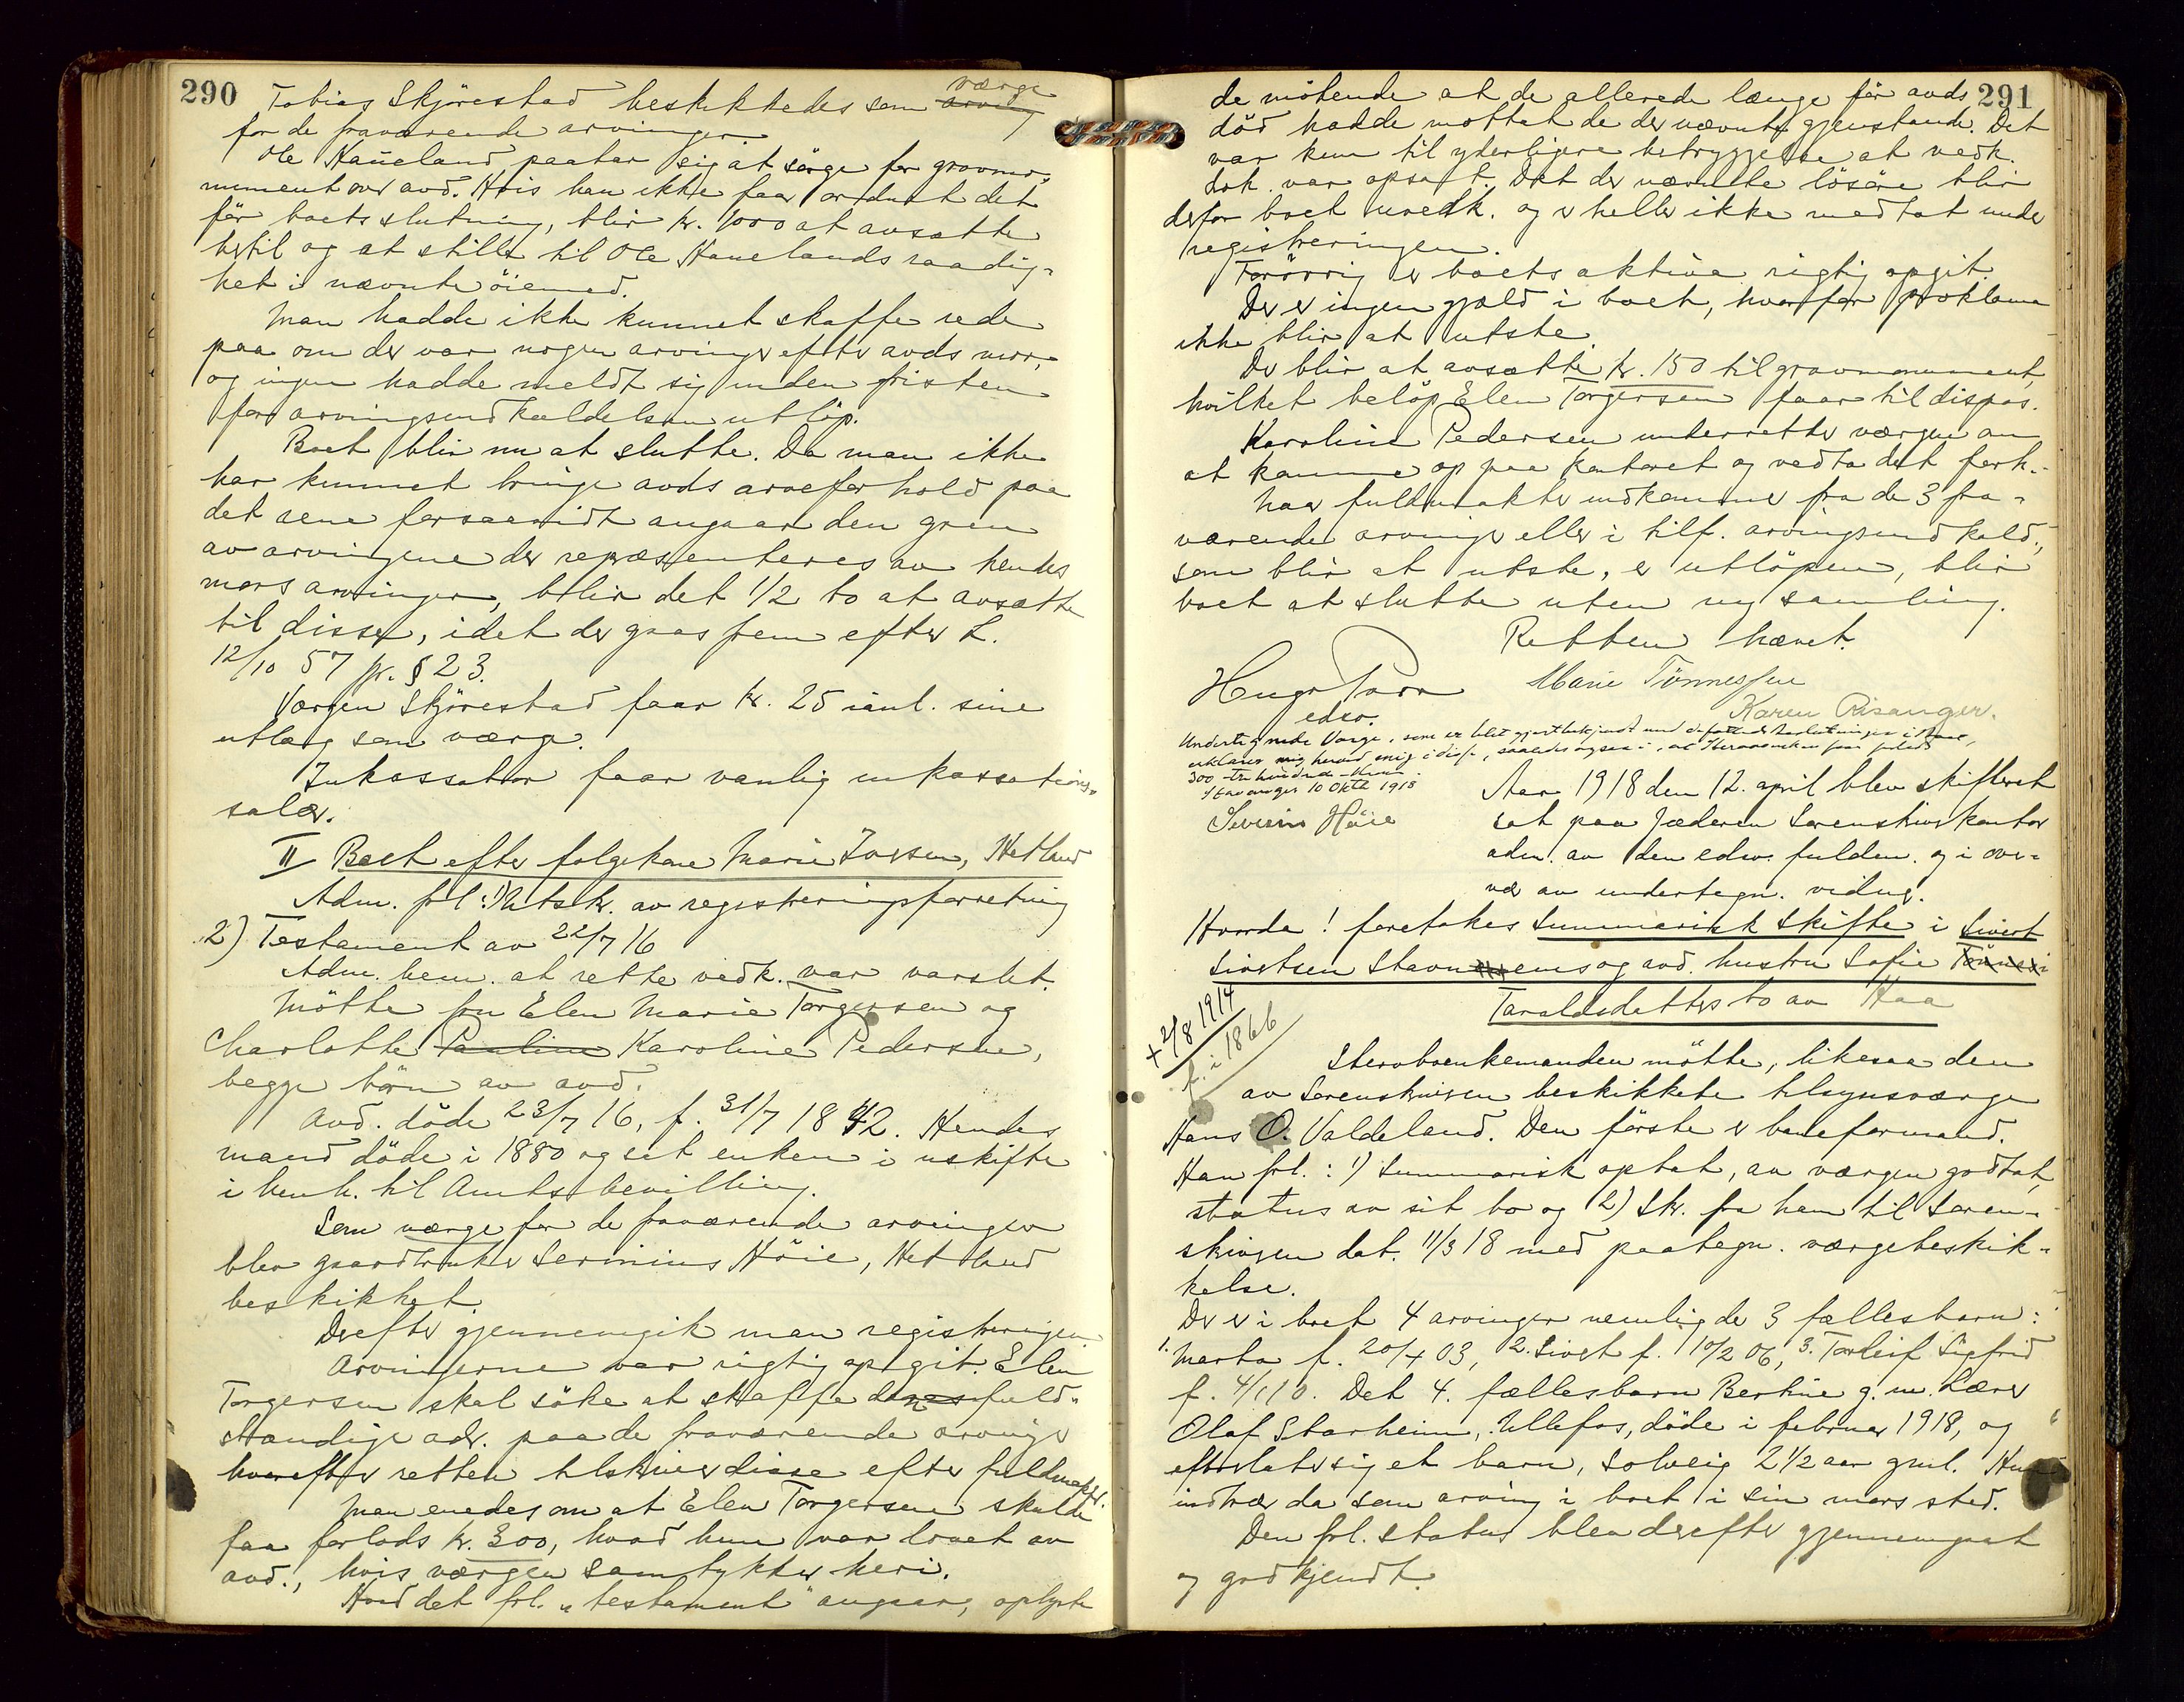 290
Tobias Skjörestad beskikkedes som værge
for de fraværende arvinger.
Ole Haneland paatar sig at sörge for gravmo-
nument over avd. Hvis han ikke faar ordnet det
för boets slutning, blir kr. 1000 at avsætte
hertil og at stille til Ole Hanelands raadig-
het i nævnte öiemed.
Man hadde ikke kunnet skaffe rede
paa om der var nogen arvinger efter avds mor,
og ingen hadde meldt sig inden fristen
for arvingsindkaldelsen utlöp.
Boet blir nu at slutte. Da man ikke
har kunnet bringe avds arveforhold paa
det rene forsaavidt angaar den gren
av arvingene der repræsenteres av hendes
mors arvinger, blir det 1/2 bo at avsætte
til disse, idet der gaas frem efter L.
12/10 57 § 23.
Værgen Skjörestad faar kr. 25 inkl. sine
utlæg som værge.
Inkassator faar vanlig inkassations-
salær.
II Boet efter folgekone Marie Iversen, Hetland
Adm. frl: 1) Utskr. av registreringsforretning
2) Testament av 22/7 16
Adm. bem. at rette vedk. var varslet.
Mötte fru Elen Marie Torgersen og
Charlotte Pauline Karoline Pedersen,
begge börn av avd.
Avd. döde 23/7 16, f. 31/7 1842. Hendes
mand döde i 1880 og sat enken i uskifte
i henh. til Amtsbevilling.
Som værge for de fraværende arvinger
blev gaardbruker Severinius Höie, Hetland
beskikket.
Derefter gjennemgik man registreringen
Arvingerne var rigtig opgit. Elen
Torgersen skal söke at skaffe den fuld-
stændige adr. paa de fraværende arvinger
hvorefter retten tilskriver disse efter fuldmakter.
Man enedes om at Elen Torgersen skulde
faa forlods kr. 300, hvad hun var lovet av
avd., hvis værgen samtykker heri.
Hvad det frl. "testament" angaar, oplyste
291
de mötende at de allerede længe för avds
död hadde mottat de der nævnte gjenstande. Det
var kun til yderligere betryggelse at vedk.
dok. var opsat. Det der nævnte lösöre blir
derfor boet uvedk. og er heller ikke medtat under
registreringen.
Forövrig er boets aktiva rigtig opgit.
Der er ingen gjæld i boet, hvorfor proklama
ikke blir at utste.
Der blir at avsætte kr. 150 til gravmonument,
hvilket belöp Elen Torgersen faar til dispos.
Karoline Pedersen underretter værgen om
at komme op paa kontoret og vedta det forh.
Naar fuldmakter indkommer fra de 3 fra-
værende arvinger eller i tilf. arvingsindkald.,
som blir at utste, er utlöpen, blir
boet at slutte uten ny samling.
Retten hævet.
Marie Tönnessen
edsv.
Karen Risanger.
Undertegnede Værge, som er blet gjort bekjendt med
erklærer mig herved enig i disse, saaledes ogsaa i, at
300 - tre hundrede - Kroner.
Stavanger 10 Okt 1918
Severin Höie
Aar 1918 den 12. april blev skifteret
sat paa Jæderen Sorenskriverkontor
adm. av den edsv. fuldm. og i over-
vær av undertegn. vidner.
Hvorda! foretokes summarisk skifte i Sivert
Sivertsen Stavnems og avd. hustru Sofie
Taraldsdatters bo av Haa
+ 2/8 1914
f. i 1866
Stervboenkemanden mötte, likesaa den
av Sorenskriveren beskikkete tilsynsværge
Hans O. Valdeland. Den förste er baneformand.
Han frl.: 1) Summarisk optat, av værgen godtat,
status av sit bo og 2) Skr. fra ham til Soren-
skriveren dat. 11/3 18 med paategn. værgebeskik-
kelse.
Der er i boet 4 arvinger nemlig de 3 fællesbarn:
1. Marta f. 20/4 03, 2. Sivert f. 10/2 06, 3. Torleif Sigfrid
f. 4/1 10. Det 4. fællesbarn Bertine g. m. Lærer
Olaf Starheim, Ullefos, döde i februar 1918, og
efterlater sig et barn, Solveig 2 1/2 aar gml. Hun
indtrær da som arving i boet i sin mors sted.
Den frl. status blev derefter gjennemgaat
og godkjendt.